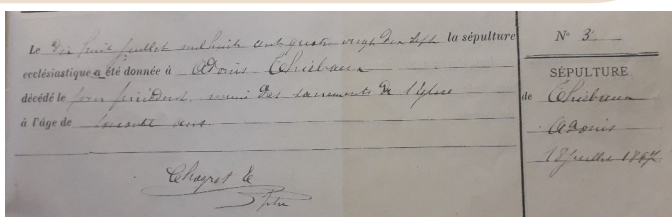 Le dix huit juillet mil huit cent quatre vingt dix sept la sépulture
ecclésiastique a été donnée à Adonis Thiebaux
décédé le jour précédent, muni des sacrements de l'Eglise
à l'âge de soixante ans.
N° 3
SÉPULTURE
de Thiebaux
Adonis
18 Juillet 1897